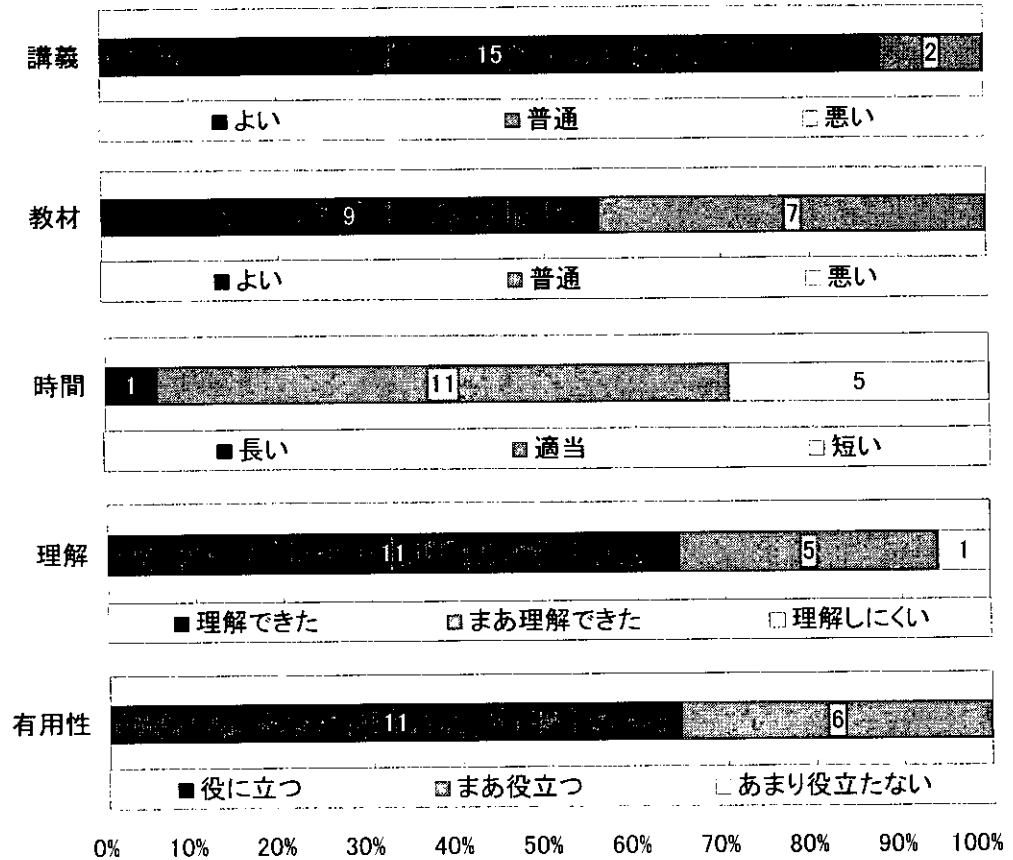 講義 15 2
■よい ■普通 □悪い
教材 9 7
■よい ■普通 □悪い
時間 1 11 5
■長い ■適当 □短い
理解 11 5 1
■理解できた ■まあ理解できた □理解しにくい
有用性 11 6
■役に立つ ■まあ役立つ □あまり役立たない
0% 10% 20% 30% 40% 50% 60% 70% 80% 90% 100%